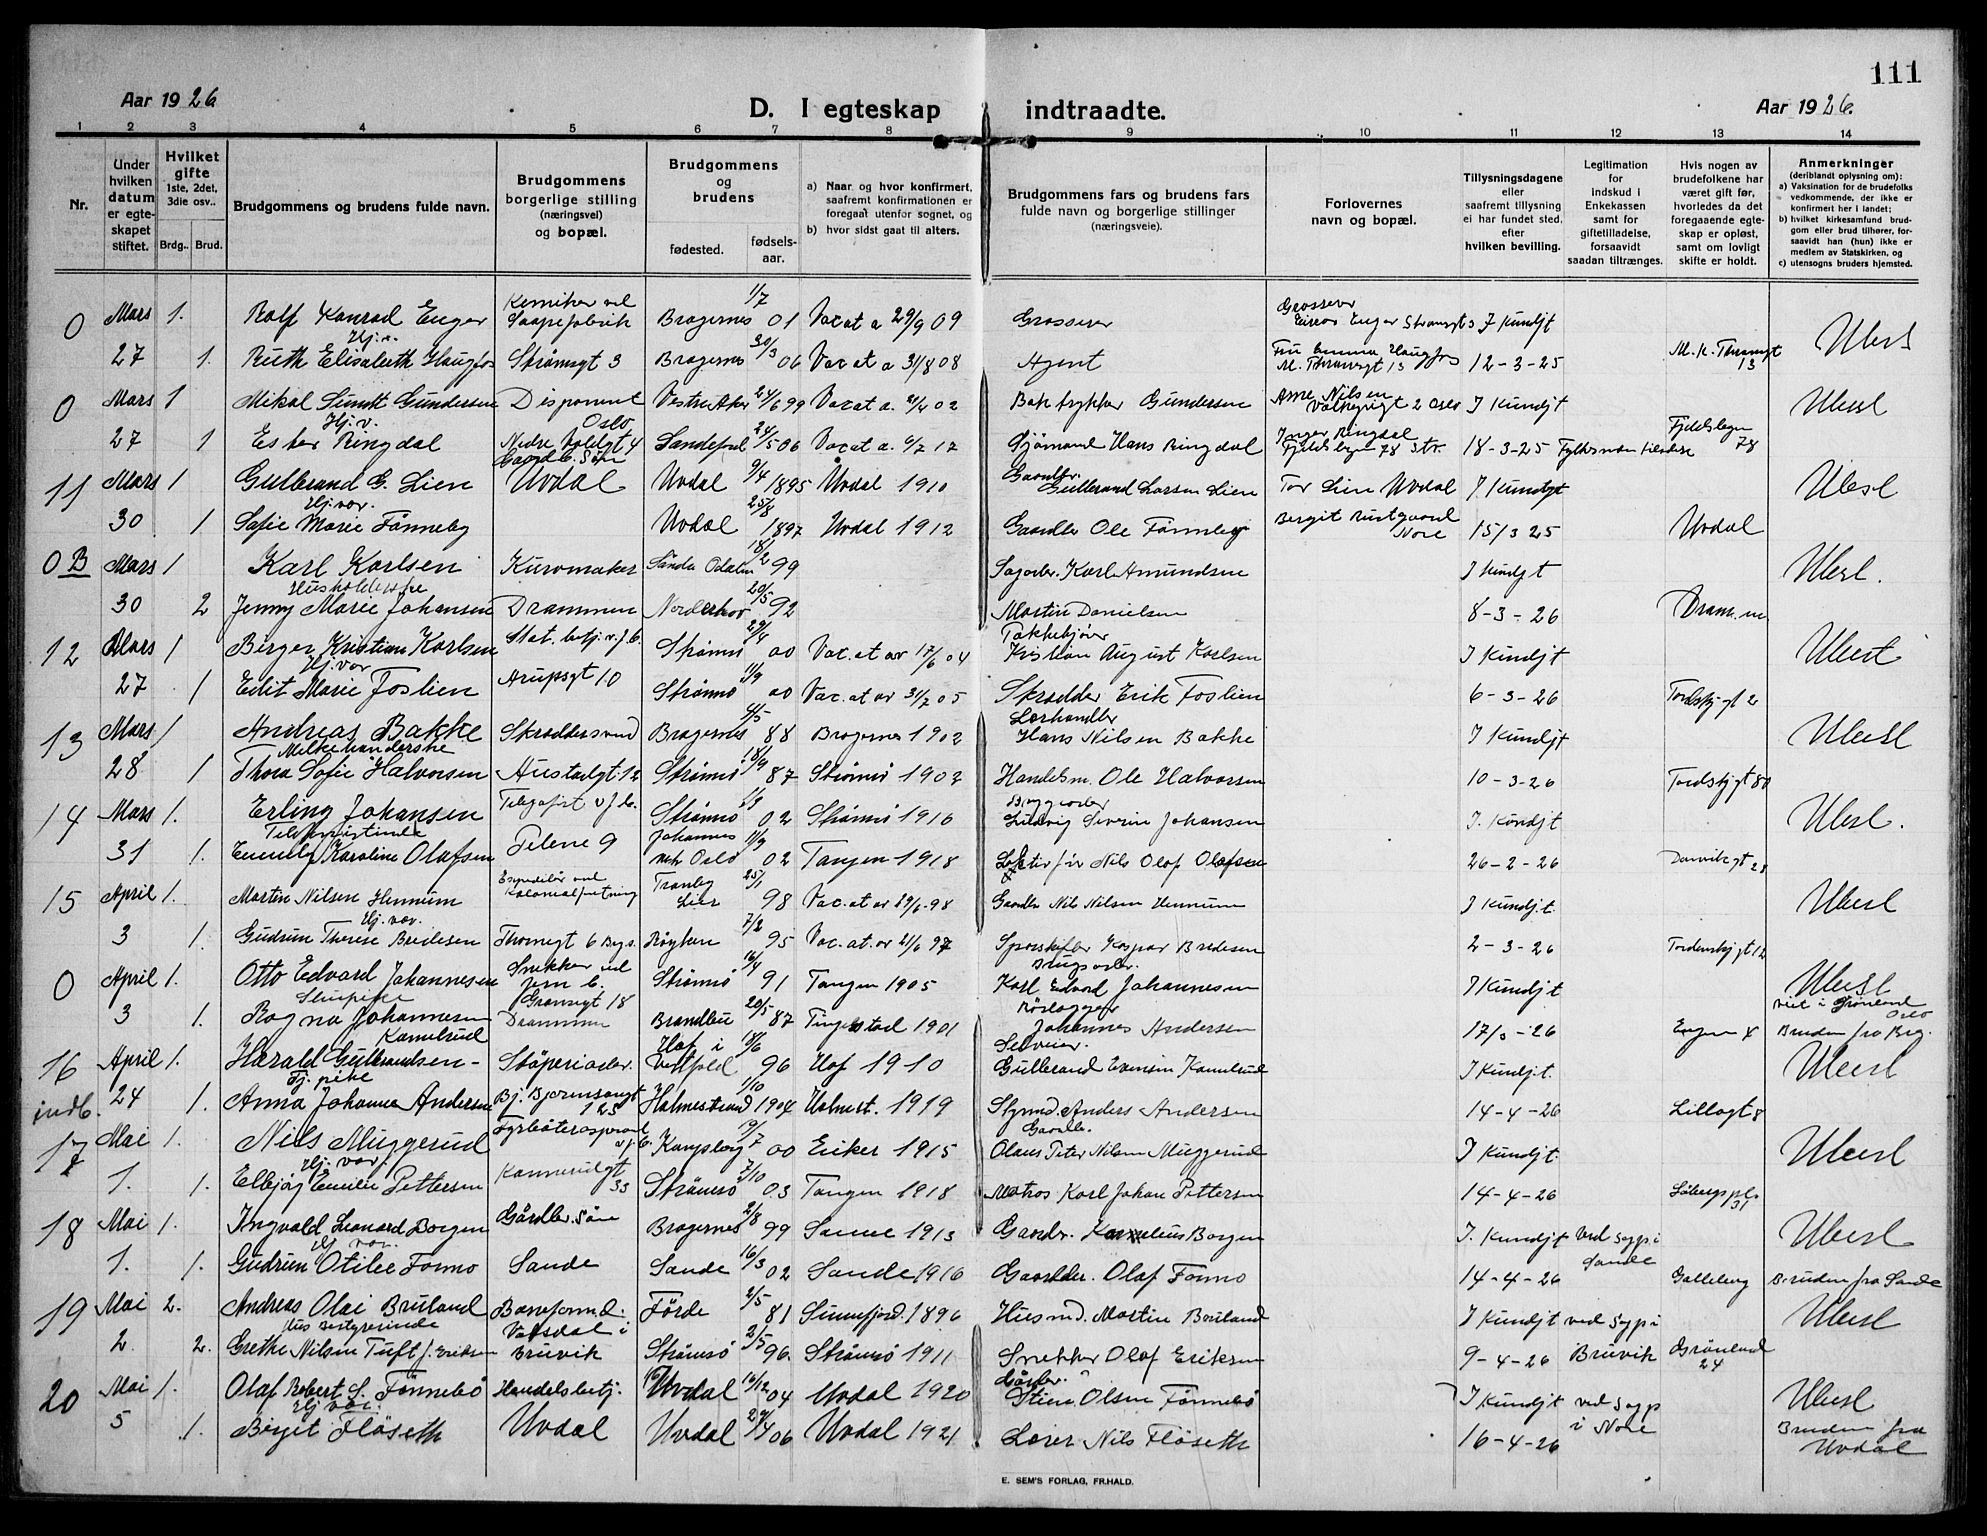 111
Aar 1926
D. I egteskap indtraadte.
Aar 1926.
1 2 3 4 5 6 7 8 9 10 11 12 13 14
Nr.
Under hvilken datum er egteskapet stiftet.
Hvilket gifte 1ste, 2det, 3die osv..
Brdg.. Brud.
Brudgommens og brudens fulde navn.
Brudgommens borgerlige stilling (næringsvei) og bopæl.
Brudgommens og brudens
fødested. fødselsaar.
a) Naar og hvor konfirmert, saafremt konfirmationen er foregaat utenfor sognet, og
b) hvor sidst gaat til alters.
Brudgommens fars og brudens fars fulde navn og borgerlige stillinger (næringsveie).
Forlovernes navn og bopæl.
Tillysningsdagene eller saafremt tillysning ei har fundet sted, efter hvilken bevilling.
Legitimation for indskud i Enkekassen samt for giftetilladelse, forsaavidt saadan tiltrænges.
Hvis nogen av brudefolkene har været gift før, hvorledes da det foregaaende egteskap er opløst, samt om lovlig skifte er holdt.
Anmerkninger (deriblandt oplysning om):
a) Vaksination for de brudefolks vedkommende, der ikke er konfirmert her i landet;
b) hvilket kirkesamfund brudgom eller brud tilhører, forsaavidt han (hun) ikke er medlem av Statskirken, og
c) utensogns bruders hjemsted.
Kemiker ved 1/7 Grosserer
0 Mars 1. Rolf Konrad Enger Saapefabrik Bragernes 01 Vac at a 29/9 09 Grosserer Enger Strømsgt 3 J Kundjt
Hj.v. 30/3
27 1. Ruth Elisabeth Haugfos Strømsgt 3 Bragernes 06 Vac at a 31/8 08 Agent Fru Emma Haugfos M. Thranesgt 13 12-3-25 M. K. Thranesgt 13 Ubesl
0 Mars 1 Mikal Sundt Gundersen Disponent Vestre Aker 24/6 99 Vac at a. 02 Baktrykker Gundersen Arne Nilsen 2 Oslo J Kundjt Ubesl
Hj.v. Oslo
27 1 Ester Ringdal Nedre Voldgt 4 Sandefj 24/5 06 Vac at a. 6/7 17 Sjømand Hans Ringdal Inger Ringdal Fjeldsbyen 78 Str. 18-3-25 Fylkesmannen Fjeldsbyen 78
11 Mars 1 Gulbrand G. Lien Gaardb. Søn Uvdal Uvdal 9/4 1895 Uvdal 1910 Gaardbr. Gulbrand Larsen Lien Tor Lien Uvdal J Kundgt Ubesl
Hj. vor. 25/8
30 1 Sofie Marie Fønneby Uvdal 1897 Uvdal 1912 Gaardbr Ole Fønneby Bergit Rustgaard Nore 15/3 25 Uvdal
0 B Mars 1 Karl Karlsen Kurvmaker Søndre Odalen 18/2 99 Sagarb. Karl Amundsen J Kundjt Ubesl.
Husholderske
30 2 Jenny Marie Johansen Drammen Norderhov 20/5 92 Martin Danielsen 8-3-26 Drammen
12 Mars 1 Birger Kristian Karlsen Stat. betj. v. J.b. Strømsø 29/4 00 Vac. at av 17/6 04 Pakkebjører Kristian August Karlsen J Kundjt Ubesl
Hj. vor
27 1 Edit Marie Foslien Arupsgt 10 Strømsø 11/9 00 Vac. at av 31/7 05 Skrædder Erik Foslien 6-3-26 Tordskj. gt 2
13 Mars 1 Andreas Bakke Skræddersvend Bragernes 4/5 88 Bragernes 1902 Lærhandler Hans Nilsen Bakke J Kundjt Ubesl
Melkehandlerske
28 1 Thora Sofie Halvorsen Austadgt 12 Strømsø 18/9 87 Strømsø 1902 Handelsm. Ole Halvorsen 10-3-26 Tordskjgt 80
14 Mars 1. Erling Johansen Telegrafist v J.b. Strømsø 02 Strømsø 1916 Bryggearb Ludvig Severin Johansen J. Kundjt Ubesl.
31 1. Emmely Karoline Olafsen Telene 9 Johannes Oslo 11/9 02 Tangen 1918 Nils Olaf Olafsen 26-2-26 Danvikgt 28
15 April 1. Martin Nilsen Hennum Expeditør ved Kolonialforretning Tranby Lier 25/1 98 Vac. at av 19/6 98 Gaardbr Nils Nilsen Hennum J Kundj.t. Ubesl
Hj. vor.
3 1. Gudrun Therese Bredesen Thornegt 6 Brgs. Røyken 7/2 95 Vac. at. av 21/6 97 Sporskifter Kaspar Bredesen 2-3-26 Tordenskjgt 12
0 April 1. Otto Edvard Johannesen Snekker ved jern b. Strømsø 16/4 91 Tangen 1905 Brugsarb. Karl Edvard Johannesen J Kundjt Ubesl
Gramsgt 18 viet i Grønland Oslo
3 1. Ragna Johannesen Drammen Brandbu 20/5 87 Tingelstad 1901 Rørlægger Johannes Andersen 17/3-26 Engen 4 Bruden fra Brg.
16 April 1. Harald Gulbrandsen Kamelrud Støperiarb. Hof i Vestfold 18/6 96 Hof 1910 Selveier. Gulbrand Evensen Kamelrud J Kundj.t. Ubesl
Tj. pike
indb. 24 1. Anna Johanne Andersen Bj. Bjørnsonsgt 125 Holmestrand 1/10 1904 Holmest. 1919 Styrmd. Anders Andersen 14-4-26 Lillogt 8
17 Mai 1. Nils Muggerud Fyrbøteraspirant v J.b. Kongsberg 19/7 00 Eiker 1915 Gaardbr. Olaus Peter Nilsen Muggerud J Kundjt. Ubesl
Hj. vor.
1. 1. Elbjør Emilie Pettersen Konnerudgt 33 Strømsø 7/10 03 Tangen 1918 Matros Karl Johan Pettersen 14-4-26 Løbergs pl. 31
18 Mai 1. Ingvald Leonard Borgen Gårdbr. Søn Bragernes 2/8 99 Sande 1913 Gaardbr. Kornelius Borgen J. Kundjt ved Sogp i Sande Ubesl
Hj vor.
1. 1. Gudrun Otilie Formo Sande Sande 16/3 02 Sande 1916 Gaardbr. Olaf Formo 14-4-26 Galleberg Bruden fra Sande
19 Mai 2. Andreas Olai Bruland Baneformd. Førde 2/5 81 Sunnfjord. 1896 Husmd. Martin Bruland J Kundjt ved Sogp i Ubesl
Husbestyrerinde
2 2. Grethe Nilsen Tuft f. Eriksen Vaksdal i Bruvik Strømsø 2/5 96. Strømsø 1911 Snekker Olaf Eriksen 9-4-26 Bruvik Grønland 24
20 Mai 1. Olaf Robert S. Fønnebø Handelsbetj. Uvdal 16/12 04 Uvdal 1920 Gårdbr. Stein Olsen Fønnebø J Kundjt ved Sogp Ubesl
Hj vor.
5 1. Birgit Fløseth Uvdal Uvdal 29/4 06 Uvdal 1921 Lærer Nils Fløseth 16-4-26 i Nore Bruden fra Uvdal
E. SEM'S FORLAG, FR.HALD.